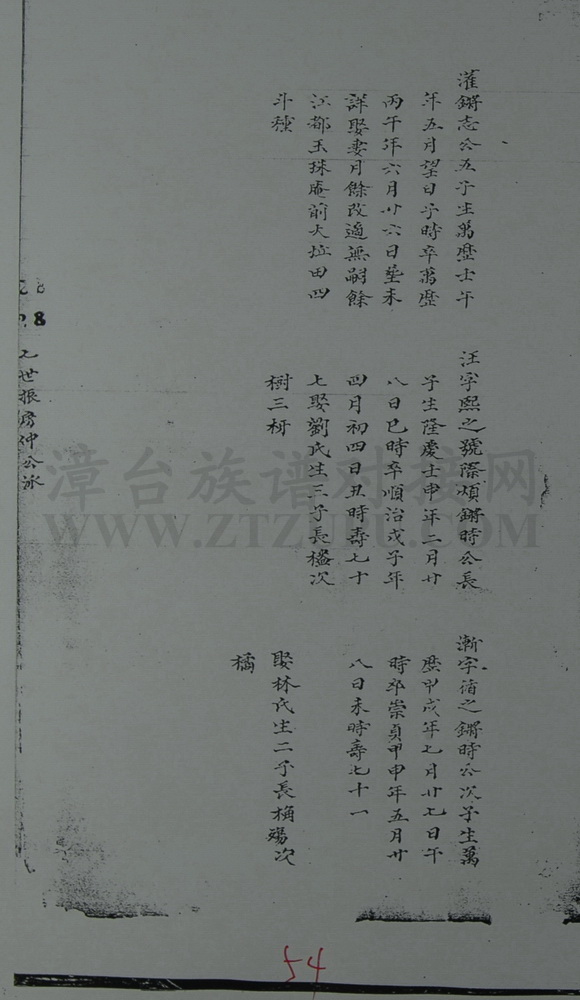 灌鏘志公五子生萬歷壬午
年五月望日子時卒萬歷
丙午年六月廿六日塟未
詳娶妻月餘改適無嗣餘
江都玉珠庵前大坵田四
斗種
汪字熙之號際煩鏘時公長
子生隆慶壬申年二月廿
八日巳時卒順治戊子年
四月初四日丑時壽七十
七娶劉氏生三子長橀次
樹三枅
漸字循之鏘時公次子生萬
歷甲戌年七月廿七日午
時卒崇貞甲申年五月廿
八日未時壽七十一
娶林氏生二子長桷殤次
橘
28
七世振房仲公派
漳台族谱对接网
WWW.ZTZUPU.COM
54